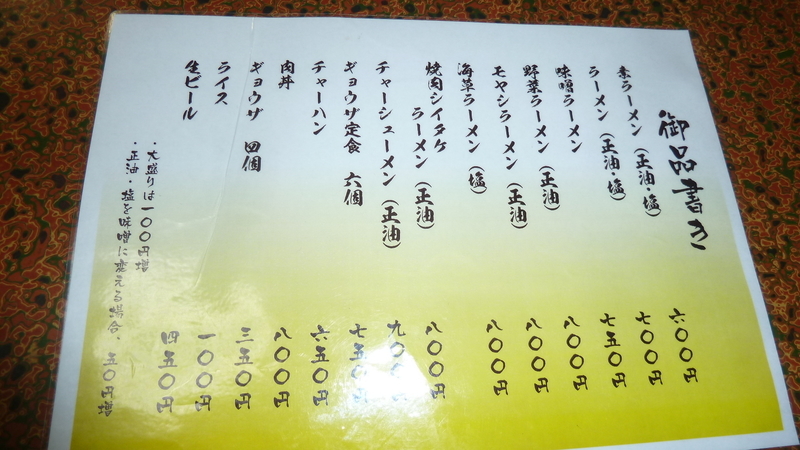 御品書き
素ラーメン(正油・塩) 六〇〇円
ラーメン(正油・塩) 七〇〇円
味噌ラーメン 七五〇円
野菜ラーメン(正油) 八〇〇円
モヤシラーメン(正油) 八〇〇円
海草ラーメン(塩) 八〇〇円
焼肉シイタケ
ラーメン(正油) 八〇〇円
チャーシューメン(正油) 九〇〇円
ギョウザ定食 六個 七五〇円
チャーハン 六五〇円
肉丼 八〇〇円
ギョウザ 四個 三五〇円
ライス 一〇〇円
生ビール 四五〇円
・大盛りは一〇〇円増
・正油・塩を味噌に変える場合、五〇円増